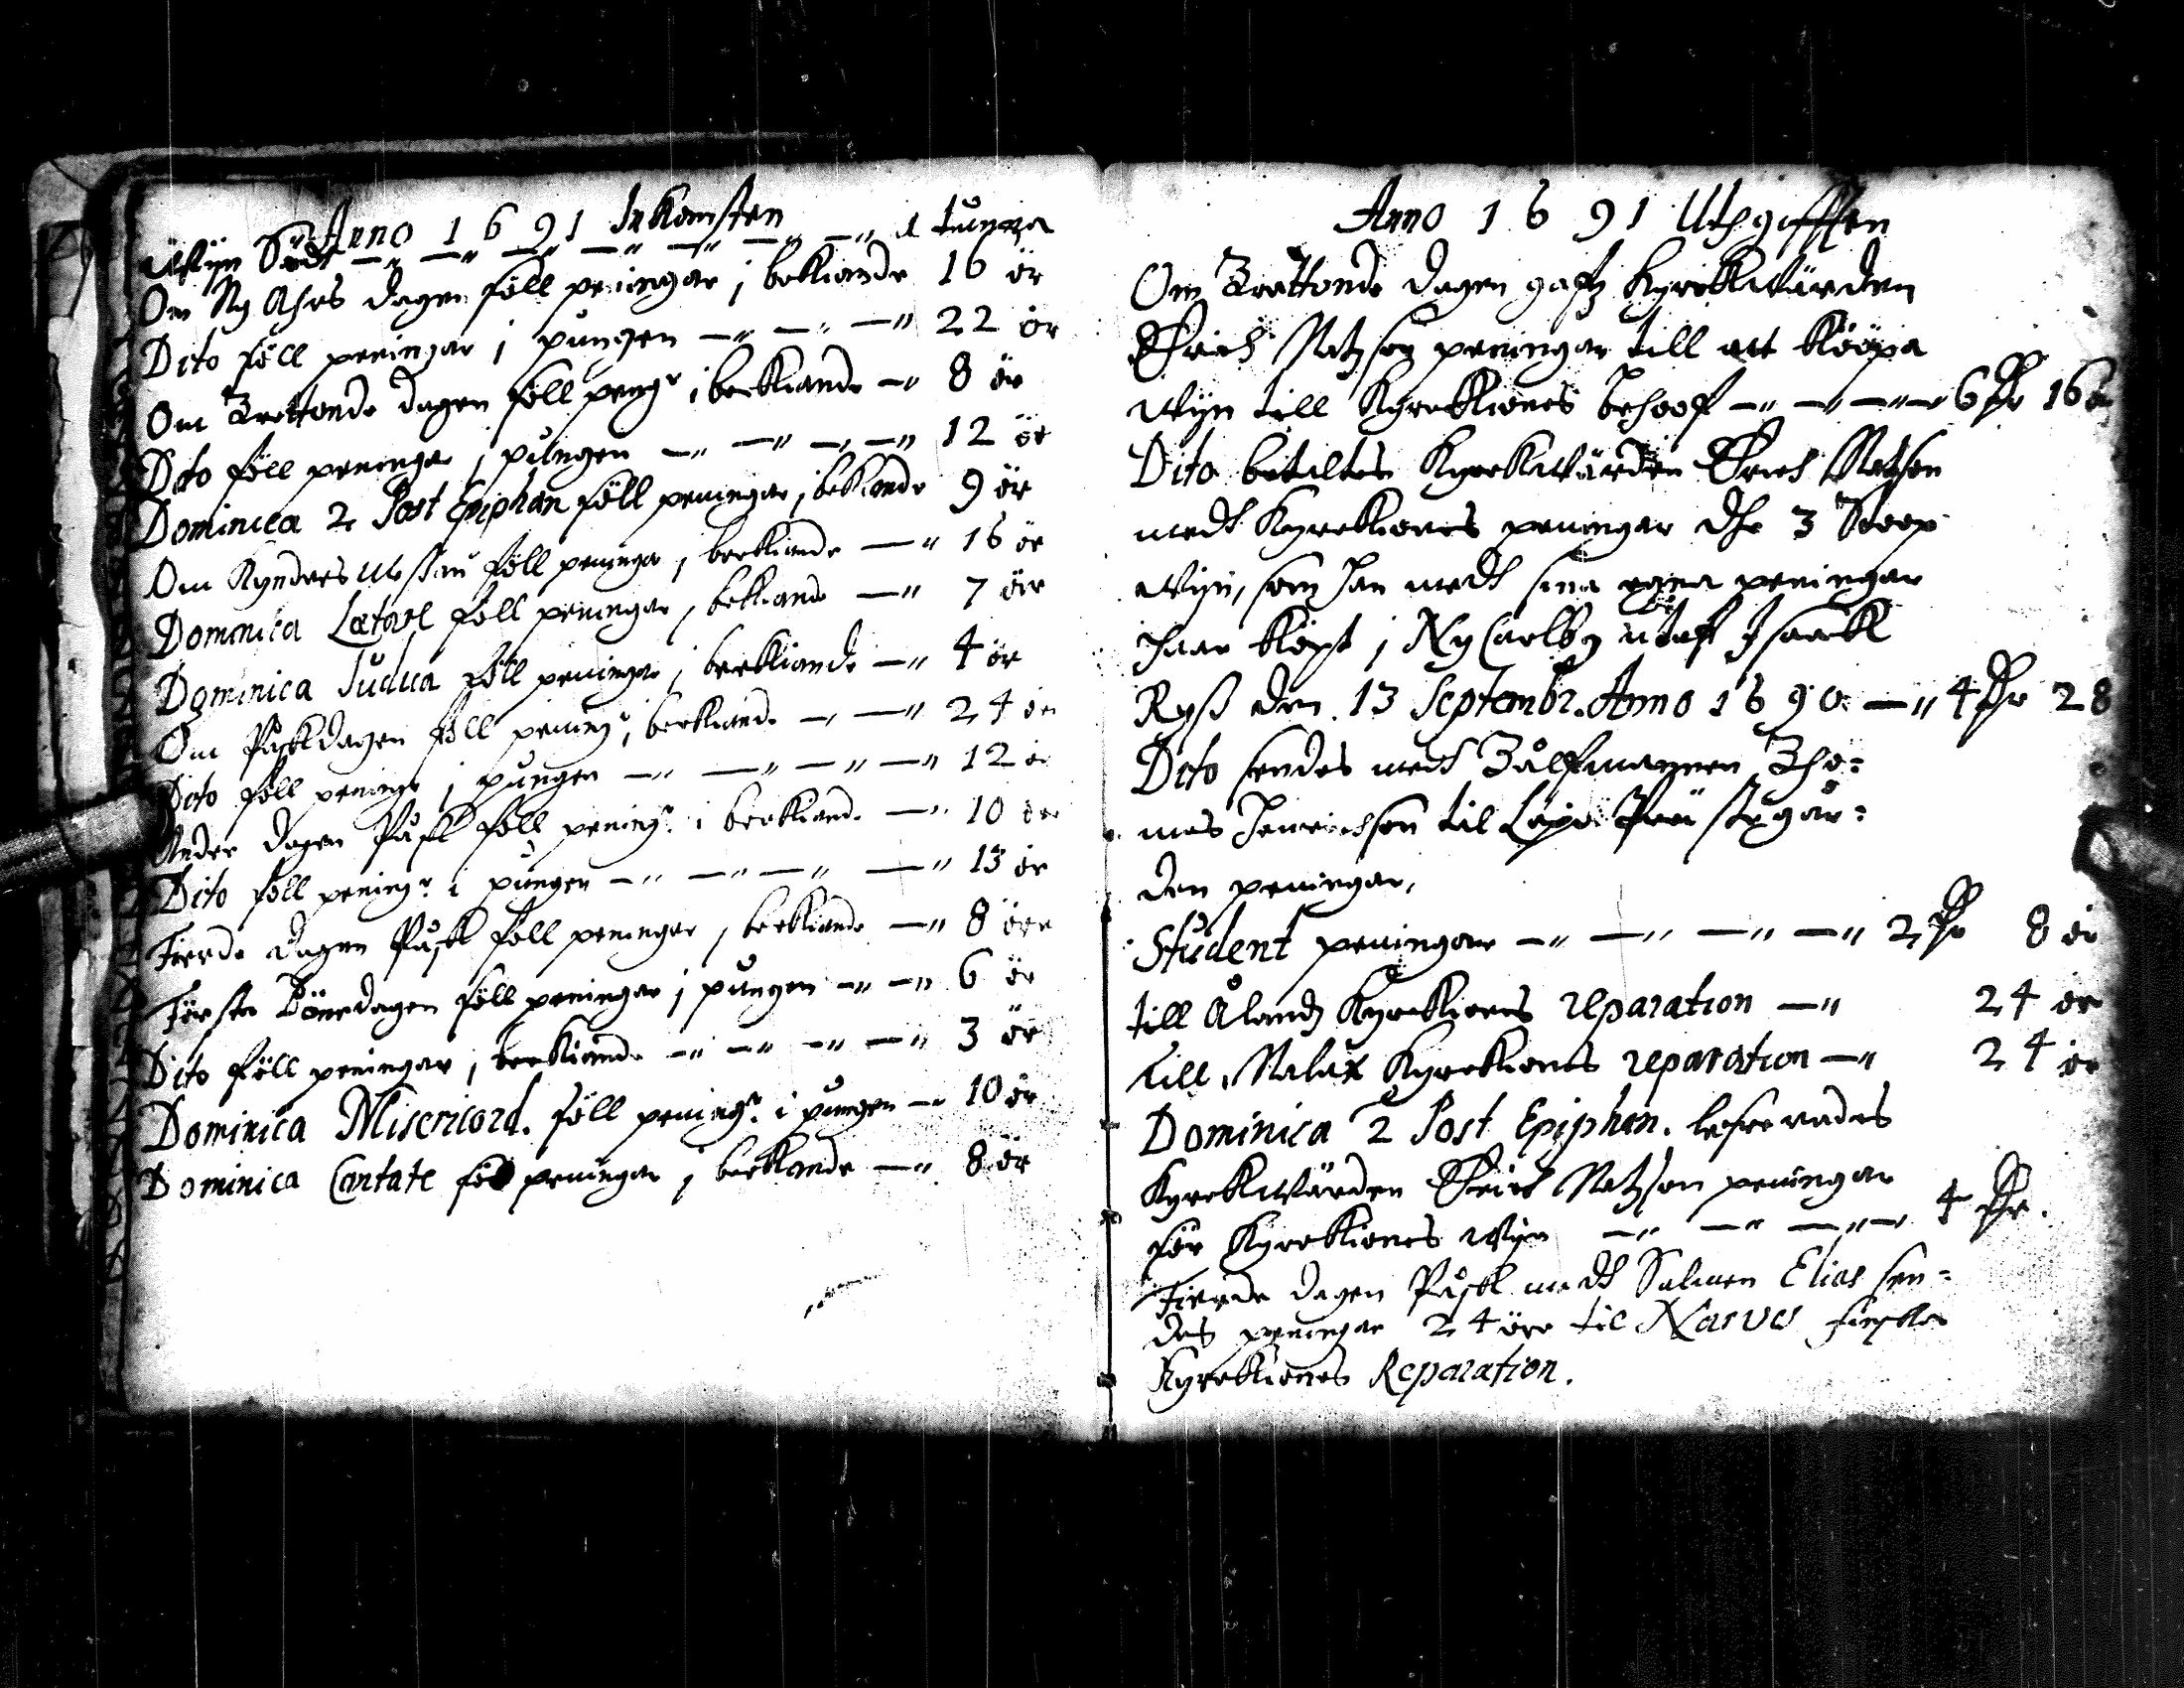 Anno 1691 Inkomsten
Wijn Sädh —" —" —" —" —" —" —" 1 tunna
Om Ny Åhrs dagen föll peningar i bekiände 16 ör
Dito föll peningar i pungen —" —" —" 22 ör
Om Trettonde dagen föll peng:r i beckiände —" 8 ör
Dito föll peningar i pungen —" —" —" —" 12 ör
Dominica 2 Post Epiphan föll peningar i bekiände 9 ör
Om Kyndersmessan föll peningar i beckiände —" 16 ör
Dominica Lætare föll peningar i bekiände —" 7 ör
Dominica Judica föll peningar i beckiände —" 4 ör
Om Påskdagen föll pening:r i beckiände —" —" 24 ör
Dito föll peningr i pungen —" —" —" —" 12 ör
Ander dagen Påsk föll pening:r i beckiände —" 10 ör
Dito föll pening:r i pungen —" —" —" —" 13 ör
Fierde dagen Påsk föll peningar i beckiände —" 8 öre
Första Bönedagen föll peningar i pungen —" —" 6 ör
Dito föll peningar i beckiände —" —" —" —" 3 ör
Dominica Misericord. föll pening:r i pungen —" 10 ör
Dominica Cantate föll peningar i beckiände —" 8 ör
Anno 1691 Uthgifften
Om Trettonde dagen gafz Kyrckwärden
Erich Matzson peningar till att kiööpa
wijn till Kyrckiones behoof —" —" —" —" 6 dlr 16 ör
Dito betaltes Kyrckwärden Erich Matzson
medh Kyrckiones peningar dhe 3 Stoop
wijn, som han medh sina egna peningar
haar köpt i Ny Carlby utaf Isaack
Ryss den 13 Septembr. Anno 1690 —" 4 dlr 28
Dito sendes medh Tålfmannen Tho=
mas Henrichson til Lapo Prästegår=
den peningar,
Student peningar —" —" —" —" 2 dlr 8 ör
till Ålandz Kyrckiones reparation —" 24 ör
till Malax Kyrckiones reparation —" 24 ör
Dominica 2 Post Epiphan. lefrerades
Kyrckwärden Erich Matzson peningar
för Kyrckiones wijn —" —" —" —" 4 dlr.
Fierde dagen Påsk medh Salmen Elias sen=
des peningar 24 öre til Narves finska
Kyrckiones Reparation.